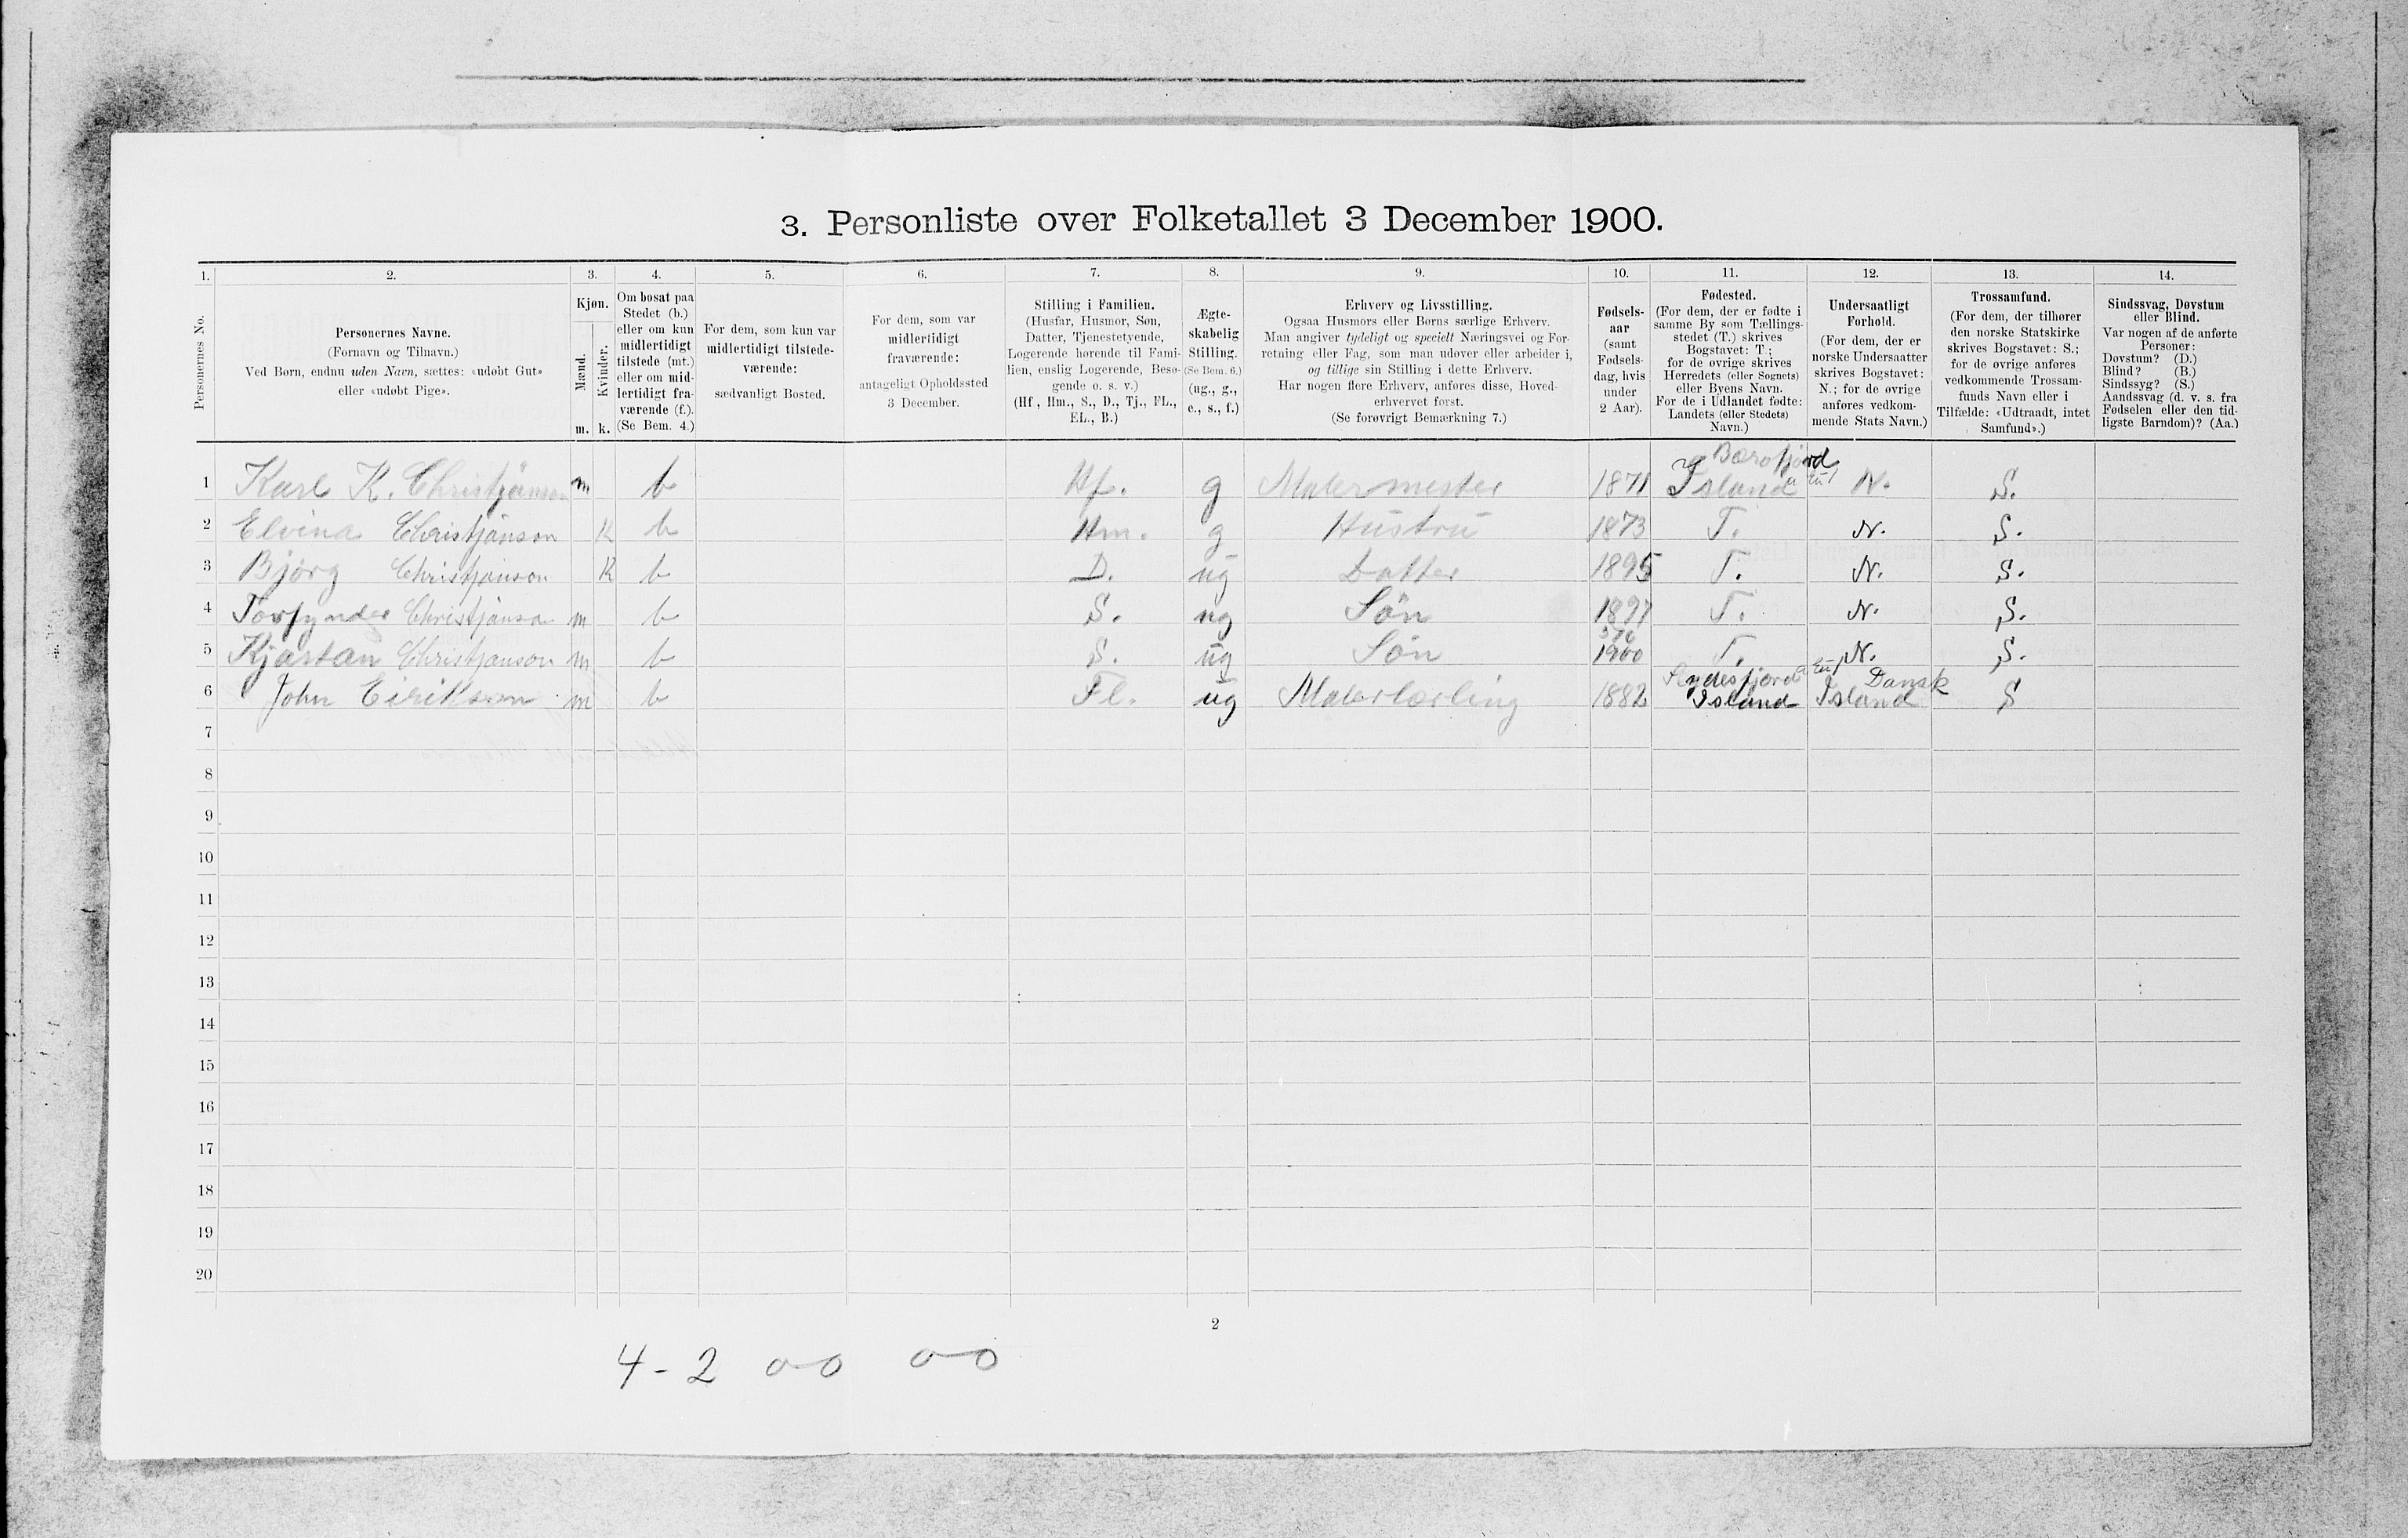 3. Personliste over Folketallet 3 December 1900.
1. 2. 3. 4. 5. 6. 7. 8. 9. 10. 11. 12. 13. 14.
Personernes No.
Personernes Navne.
(Fornavn og Tilnavn.)
Ved Børn, endnu uden Navn, sættes: «udøbt Gut»
eller «udøbt Pige».
Kjøn.
Mænd.
Kvinder.
m. k.
Om bosat paa
Stedet (b.)
eller om kun
midlertidigt
tilstede (mt.)
eller om mid-
lertidigt fra-
værende (f.).
(Se Bem. 4.)
For dem, som kun var
midlertidigt tilstede-
værende:
sædvanligt Bosted.
For dem, som var
midlertidigt
fraværende:
antageligt Opholdssted
3 December.
Stilling i Familien.
(Husfar, Husmor, Søn,
Datter, Tjenestetyende,
Logerende hørende til Fami-
lien, enslig Logerende, Besø-
gende o. s. v.)
(Hf., Hm., S., D., Tj., FL.,
EL., B.)
Ægte-
skabelig
Stilling.
(Se Bem. 6.)
(ug., g.,
e., s., f.)
Erhverv og Livsstilling.
Ogsaa Husmors eller Børns særlige Erhverv.
Man angiver tydeligt og specielt Næringsvei og For-
retning eller Fag, som man udøver eller arbeider i,
og tillige sin Stilling i dette Erhverv.
Har nogen flere Erhverv, anføres disse, Hoved-
erhvervet først.
(Se forøvrigt Bemærkning 7.)
Fødsels-
aar
(samt
Fødsels-
dag, hvis
under
2 Aar).
Fødested.
(For dem, der er fødte i
samme By som Tællings-
stedet (T.) skrives
Bogstavet: T.;
for de øvrige skrives
Herredets (eller Sognets)
eller Byens Navn.
For de i Udlandet fødte:
Landets (eller Stedets)
Navn.)
Undersaatligt
Forhold.
(For dem, der er
norske Undersaatter
skrives Bogstavet:
N.; for de øvrige
anføres vedkom-
mende Stats Navn.)
Trossamfund.
(For dem, der tilhører
den norske Statskirke
skrives Bogstavet: S.;
for de øvrige anføres
vedkommende Trossam-
funds Navn eller i
Tilfælde: «Udtraadt, intet
Samfund».)
Sindssvag, Døvstum
eller Blind.
Var nogen af de anførte
Personer:
Døvstum? (D.)
Blind? (B.)
Sindssyg? (S.)
Aandssvag (d. v. s. fra
Fødselen eller den tid-
ligste Barndom)? (Aa.)
1 Karl K. Christjánson m b Hf. g Malermester 1871 Island N. S.
2 Elvina Christjánson K b Hm. g Hustrú 1873 T. N. S.
3 Bjørg Christjánson K b D. ug Datter 1895 T. N. S.
4 Christjánson m b S. ug Søn 1897 T. N. S.
5 Kjartan Christjanson m b S. ug Søn 1900 T. N. S.
Dansk
6 John Eirikson m b Fl. ug Malerlærling 1882 Island Island S
7
8
9
10
11
12
13
14
15
16
17
18
19
20
2
4 - 2 0-0 0-0